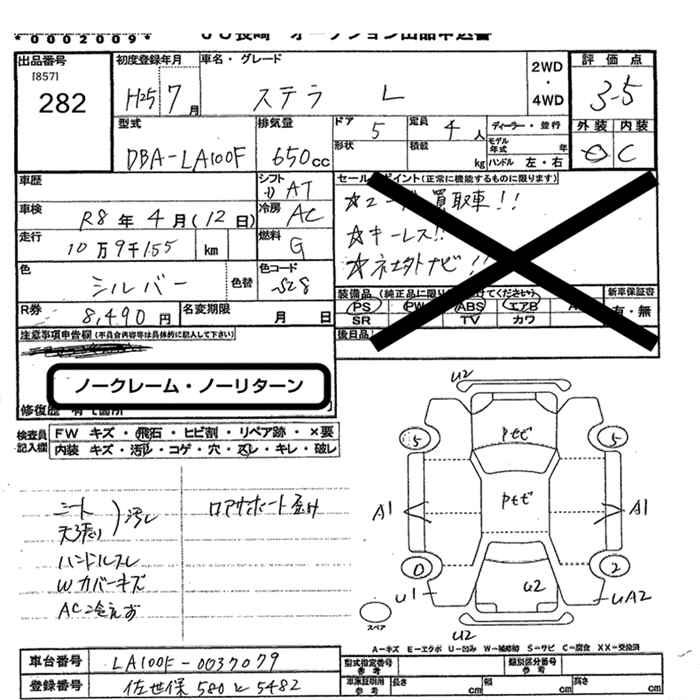 *0002009*
JU長崎 オークション出品申込書
出品番号
[857]
282
初度登録年月
H25 7 月
車名・グレード
ステラ L
2WD
・
4WD
評価点
3-5
外装 内装
C
型式
DBA-LA100F
排気量
650cc
ドア
5
定員
4人
形状
積載
kg
ディーラー・並行
モデル年式
年
ハンドル 左・右
車歴
シフト
AT
車検
R8年4月(12日)
冷房
AC
走行
10万9千155 km
燃料
G
色
シルバー
色替
色コード
S28
R券
8,490円
名変期限
月 日
セールスポイント(正常に機能するものに限ります)
買取車!!
☆キーレス!!
☆ネ土外ナビ!!
装備品
新車保証書
有・無
PS PW ABS エアB
SR TV カワ
後日品
注意事項申告欄(不具合内容等は具体的に記入して下さい)
ノークレーム・ノーリターン
修復歴 有 箇所
検査員記入欄
FW キズ・飛石・ヒビ割・リペア跡・×要
内装 キズ・汚レ・コゲ・穴・スレ・キレ・破レ
シート
天張り
汚レ
ハンドルスレ
Wカバーキズ
AC冷えず
ロアサポート歪ミ
U2
5 5
Pセビ
Pセビ
A1 A1
0 2
U1 U2 UA2
U2
スペア
A-キズ E-エクボ U-凹み W-補修跡 S-サビ C-腐食 XX-交換済
車台番号
LA100F-0037079
登録番号
佐世保 580 と 5482
型式指定番号
参考
類別区分番号
参考
車体証明用
参考
長さ cm
幅 cm
高さ cm